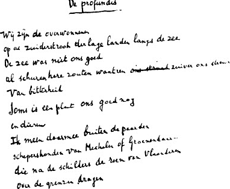 De profundis
Wij zijn de overwonnenen
op de zuiderstrook der lage landen langs de zee
De zee was niet ons goed
al schuren hare zouten wanten zuiver ons
Van bitterheid
Soms is een plant ons goed nog
en dieren
Ik meen daarmee buiten de paarden
schapershonden van Mechelen of Groenendael
die na de schilders de roem van Vlaanderen
over de grenzen dragen